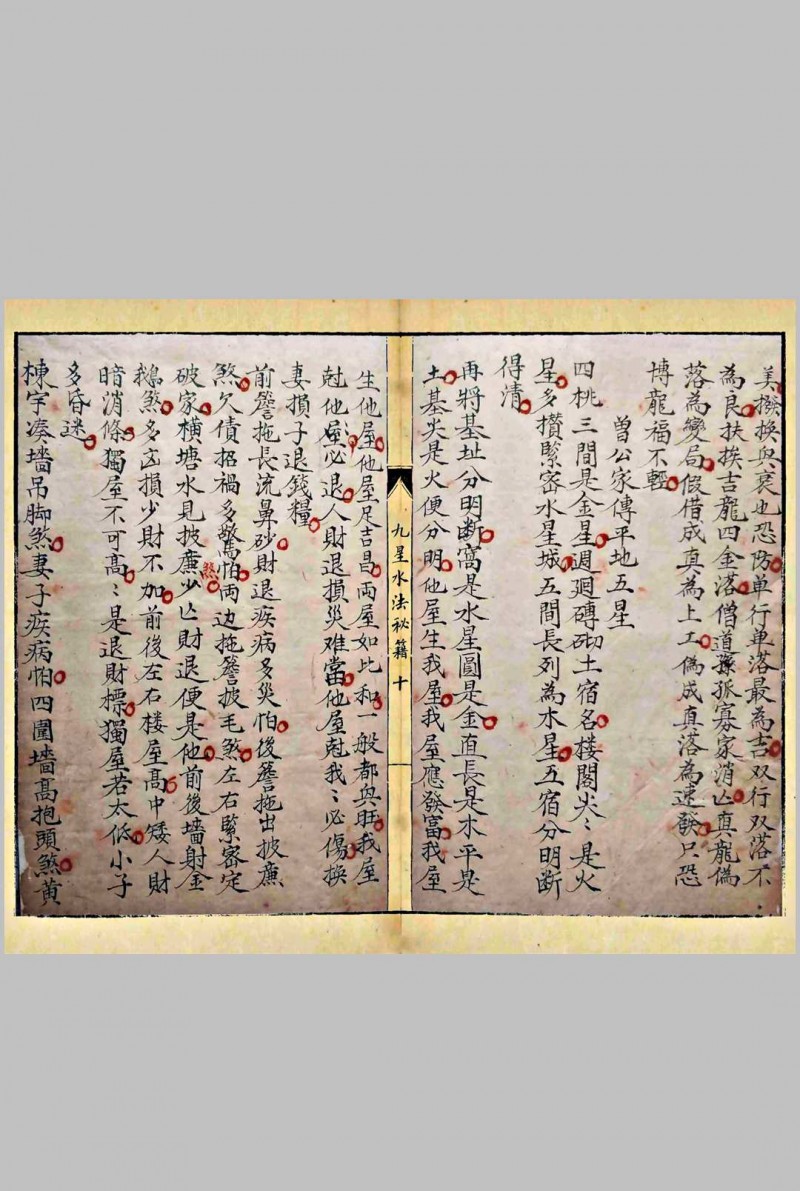 美撥換與衰也恐防單行單落最為吉双行双落不
為良扶挨吉龍四金落僧道孫孤寡家消亾真龍偽
落為變局假借成真為上工偽成真落為速發只恐
博龍福不輕
曾公家傳平地五星
四桃三間是金星週廻磚砌土宿名楼閣尖〻是火
星多攢緊密水星城五間長列為木星五宿分明断
得清
再將基址分明断窩是水星圓是金直長是木平是
土基尖是火便分明他屋生我屋我屋應發富我屋
九星水法祕籍 十
生他屋他屋足吉昌两屋如比和一般都與旺我屋
尅他屋必退人財退損災难當他屋尅我〻必傷換
妻損子退錢糧
前簷拖長流鼻砂財退疾病多災怕後簷拖出披廉
煞欠債招禍多驚怕两边拖簷披毛煞左右緊密定
煞
破家橫塘水見披廉少亾財退便是他前後墻射金
鵝煞多凶損少財不加前後左右楼屋高中矮人財
暗消條獨屋不可高〻是退財標獨屋若太低小子
多昏迷
棟宇凑墻吊脚煞妻子疾病怕四圍墻高抱頭煞黄